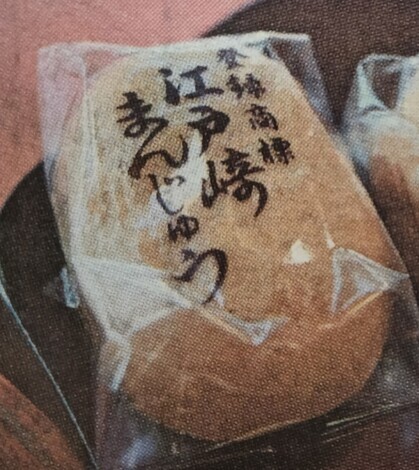 登録商標
江戸崎
まんじゅう